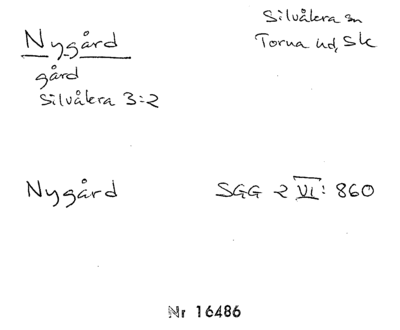 Nygård
gård
Silvåkra 3:2
Silvåkra sn
Torna hd, Sk
Nygård SGG 2 VI: 860
Nr 16486